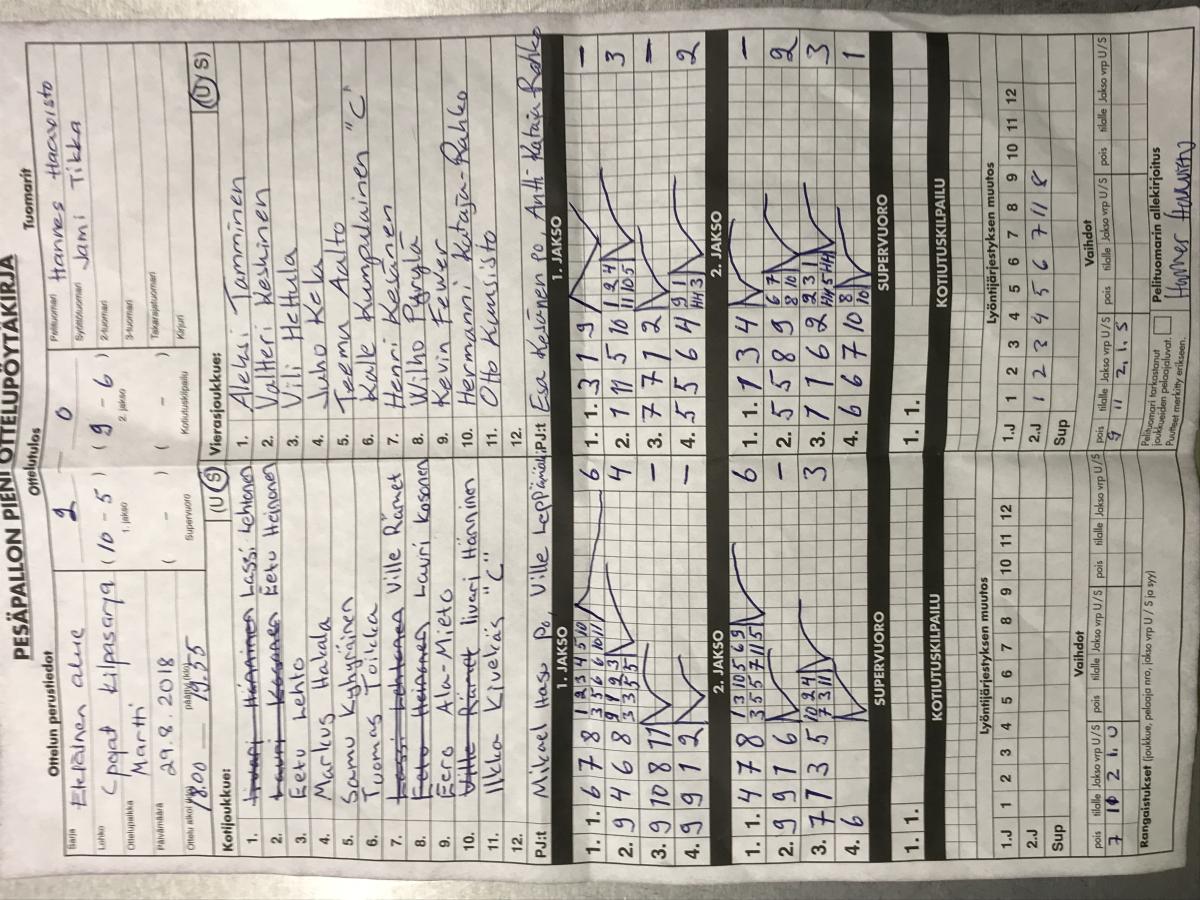 PESÄPALLON PIENI OTTELUPÖYTÄKIRJA
Ottelun perustiedot
Ottelutulos
Tuomarit
Sarja Eteläinen alue
2 0
Pelituomari Hannes Haavisto
Lohko C pojat kilpasarja
(10 - 5) (9 - 6)
1. jakso 2. jakso
Syöttötuomari Jami Tikka
2-tuomari
Ottelupaikka Martti
3-tuomari
Päivämäärä 29.8.2018
( - ) ( - )
Supervuoro Kotiutuskilpailu
Takarajatuomari
Ottelu alkoi (klo) 18.00 päättyi (klo) 19.35
Kirjuri
Kotijoukkue: (U S)
1. Iivari Hänninen Lassi Lehtonen
2. Lauri Kosonen Eetu Heinonen
3. Eetu Lehto
4. Markus Hakala
5. Samu Kyhyräinen
6. Tuomas Toikka
7. Lassi Lehtonen Ville Rämet
8. Eetu Heinonen Lauri Kosonen
9. Eero Ala-Mieto
10. Ville Rämet Iivari Hänninen
11. Ilkka Kivekäs "C"
12.
PJ:t Mikael Haso Po, Ville Leppämäki
Vierasjoukkue: (U S)
1. Aleksi Tamminen
2. Valtteri Keskinen
3. Vili Hettula
4. Juho Kela
5. Teemu Aalto
6. Kalle Kumpulainen "C"
7. Henri Kesänen
8. Wilho Pyrylä
9. Kevin Fewer
10. Hermanni Kataja-Rahko
11. Otto Kuusisto
12.
PJ:t Esa Kesänen po, Antti Kataja-Rahko
1. JAKSO
1. 1. 6 7 8 1 2 3 4 5 10 6
3 5 6 6 10 11
2. 9 4 6 8 9 1 2 3 4
3 3 5 5
3. 9 10 8 11 –
4. 9 9 1 2 –
1. JAKSO
1. 1. 3 1 9 –
2. 1 11 5 10 1 2 4 3
11 10 5
3. 7 7 1 2 –
4. 5 5 6 4 9 1 2
HH 3
2. JAKSO
1. 1. 4 7 8 1 3 10 5 6 9 6
3 5 5 7 11 5
2. 9 9 1 6 –
3. 7 7 3 5 10 2 4 3
7 3 11
4. 6
2. JAKSO
1. 1. 1 3 4 –
2. 5 5 8 9 6 7 2
8 10
3. 1 1 6 2 2 3 1 3
HH 5 HH
4. 6 6 7 10 8 1
10
SUPERVUORO
1. 1.
SUPERVUORO
1. 1.
KOTIUTUSKILPAILU
KOTIUTUSKILPAILU
Lyöntijärjestyksen muutos
1.J 1 2 3 4 5 6 7 8 9 10 11 12
2.J
Sup
Lyöntijärjestyksen muutos
1.J 1 2 3 4 5 6 7 8 9 10 11 12
2.J 1 2 3 4 5 6 7 11 8
Sup
Vaihdot
pois tilalle Jakso vrp U/S pois tilalle Jakso vrp U/S pois tilalle Jakso vrp U/S
7 10 2 1. U
Vaihdot
pois tilalle Jakso vrp U/S pois tilalle Jakso vrp U/S pois tilalle Jakso vrp U/S
9 11 2. 1. S
Rangaistukset (joukkue, pelaaja nro, jakso vrp U / S ja syy)
Pelituomari tarkastanut
joukkueiden pelaajaluvat.
Puutteet merkitty erikseen.
Pelituomarin allekirjoitus